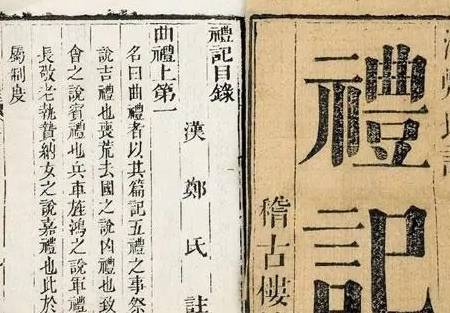 禮記
稽古樓
禮記目錄
漢鄭氏註
曲禮上第一
名曰曲禮者以其篇記五禮之事祭
說吉禮也喪荒去國之說凶禮也致
會之說賓禮也兵車旌鴻之說軍禮
長敬老執贄納女之說嘉禮也此於
屬制度